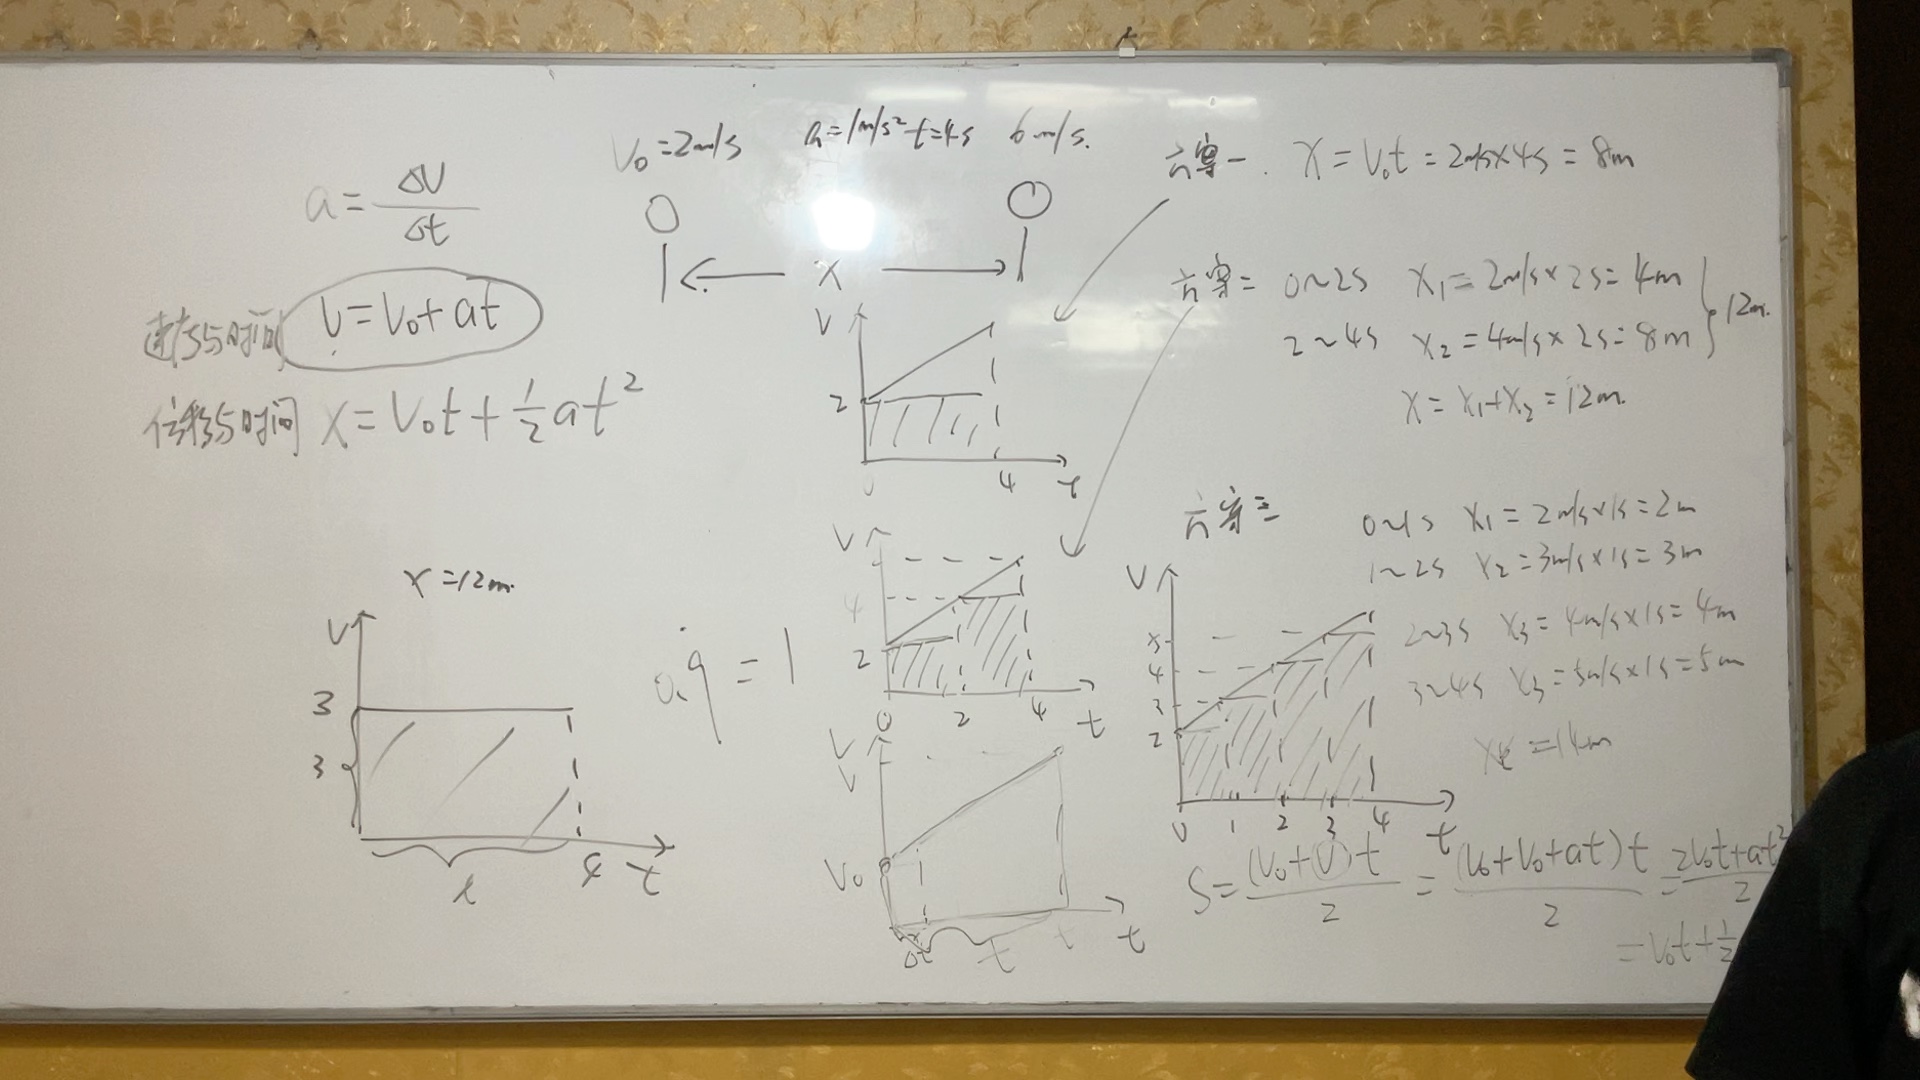 a = ΔV/Δt
速度与时间 V=V₀+at
位移与时间 X=V₀t+½at²
V₀=2m/s a=1m/s² t=4s 6m/s.
X
V
2
0 4 t
V
4
2
0 2 4 t
V
V
V₀
Δt t t t
x=12m.
V
3
3
t 4 t
0.9̇=1
方案一. X=V₀t=2m/s×4s=8m
方案二 0~2s X₁=2m/s×2s=4m
2~4s X₂=4m/s×2s=8m
12m.
X=X₁+X₂=12m.
方案三
0~1s X₁=2m/s×1s=2m
1~2s X₂=3m/s×1s=3m
2~3s X₃=4m/s×1s=4m
3~4s X₃=5m/s×1s=5m
=14m
V
5
4
3
2
0 1 2 3 4 t
S=(V₀+V)t/2=(V₀+V₀+at)t/2=2V₀t+at²/2
=V₀t+½